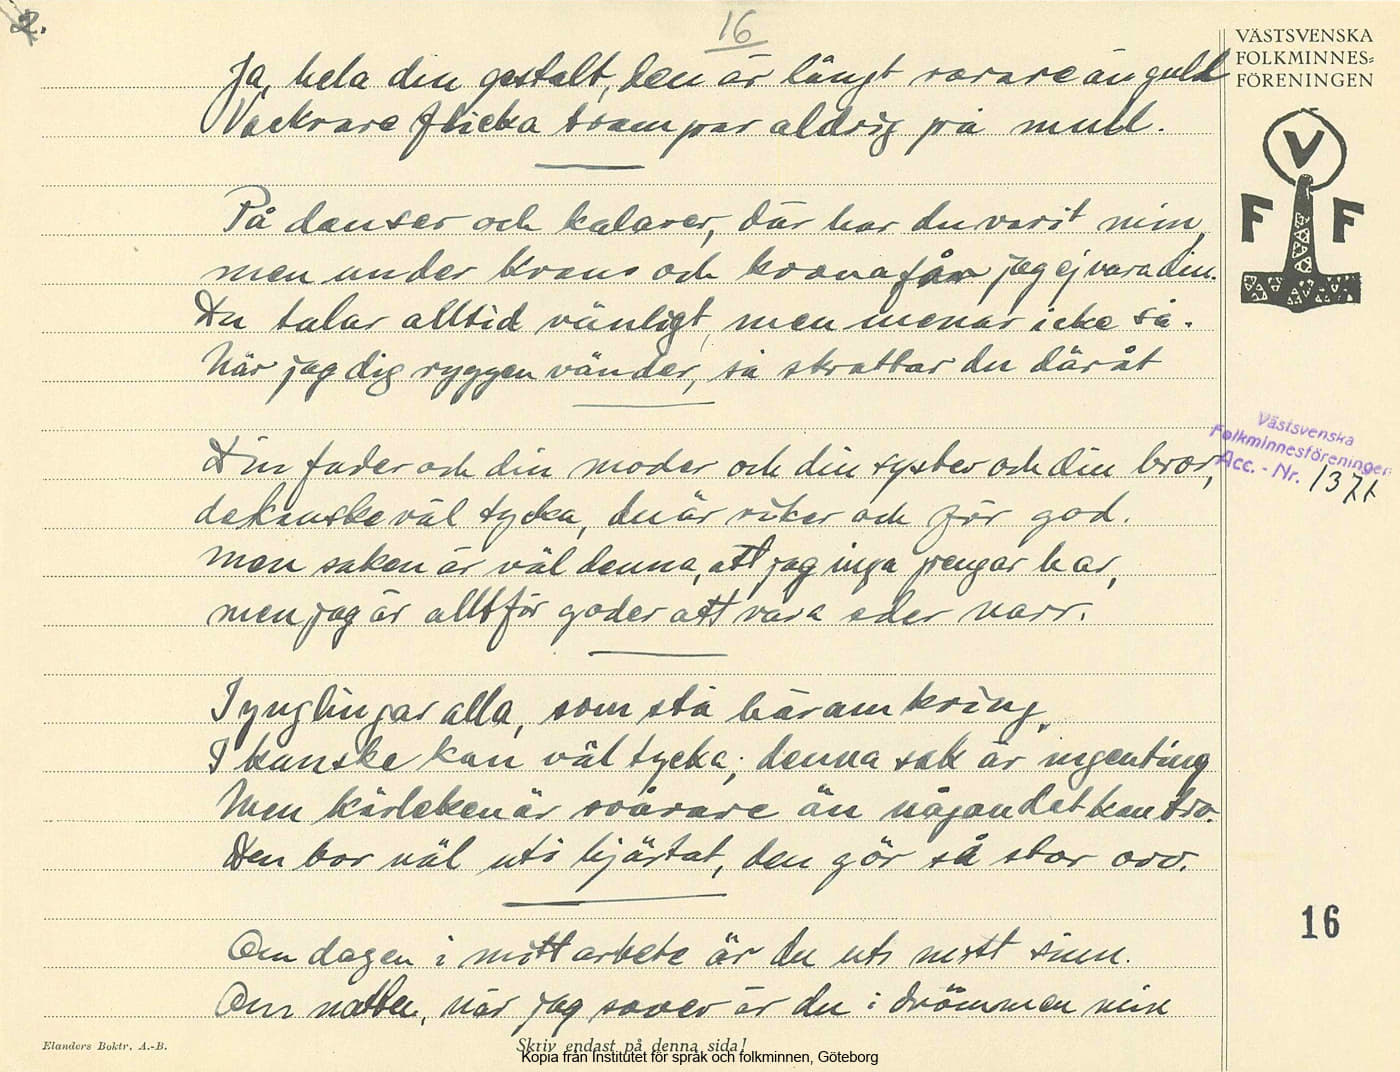 2.
16
VÄSTSVENSKA
FOLKMINNES=
FÖRENINGEN
V
F F
Ja, hela din gestalt, den är långt rarare än guld
Vackrare flicka trampar aldrig på mull.
På danser och kalaser, där har du varit min,
men under krans och krona får jag ej vara din.
Du talar alltid vänligt, men menar icke så.
När jag dig ryggen vänder, så skrattar du däråt
Din fader och din moder och din syster och din bror,
de kanske väl tycka, du är riker och för god.
Men saken är väl denna, att jag inga pengar har,
men jag är alltför goder att vara eder narr.
Västsvenska
Folkminnesföreningen
Acc. - Nr. 1371
I ynglingar alla, som stå häromkring,
I kanske kan väl tycka, denna sak är ingenting
Men kärleken är svårare än någon det kan tro.
Den bor väl uti hjärtat, den gör så stor oro.
16
Om dagen i mitt arbete är du uti mitt sinn.
Om natten, när jag sover är du i drömmen min
Elanders Boktr. A.-B.
Skriv endast på denna sida!
Kopia från Institutet för språk och folkminnen, Göteborg